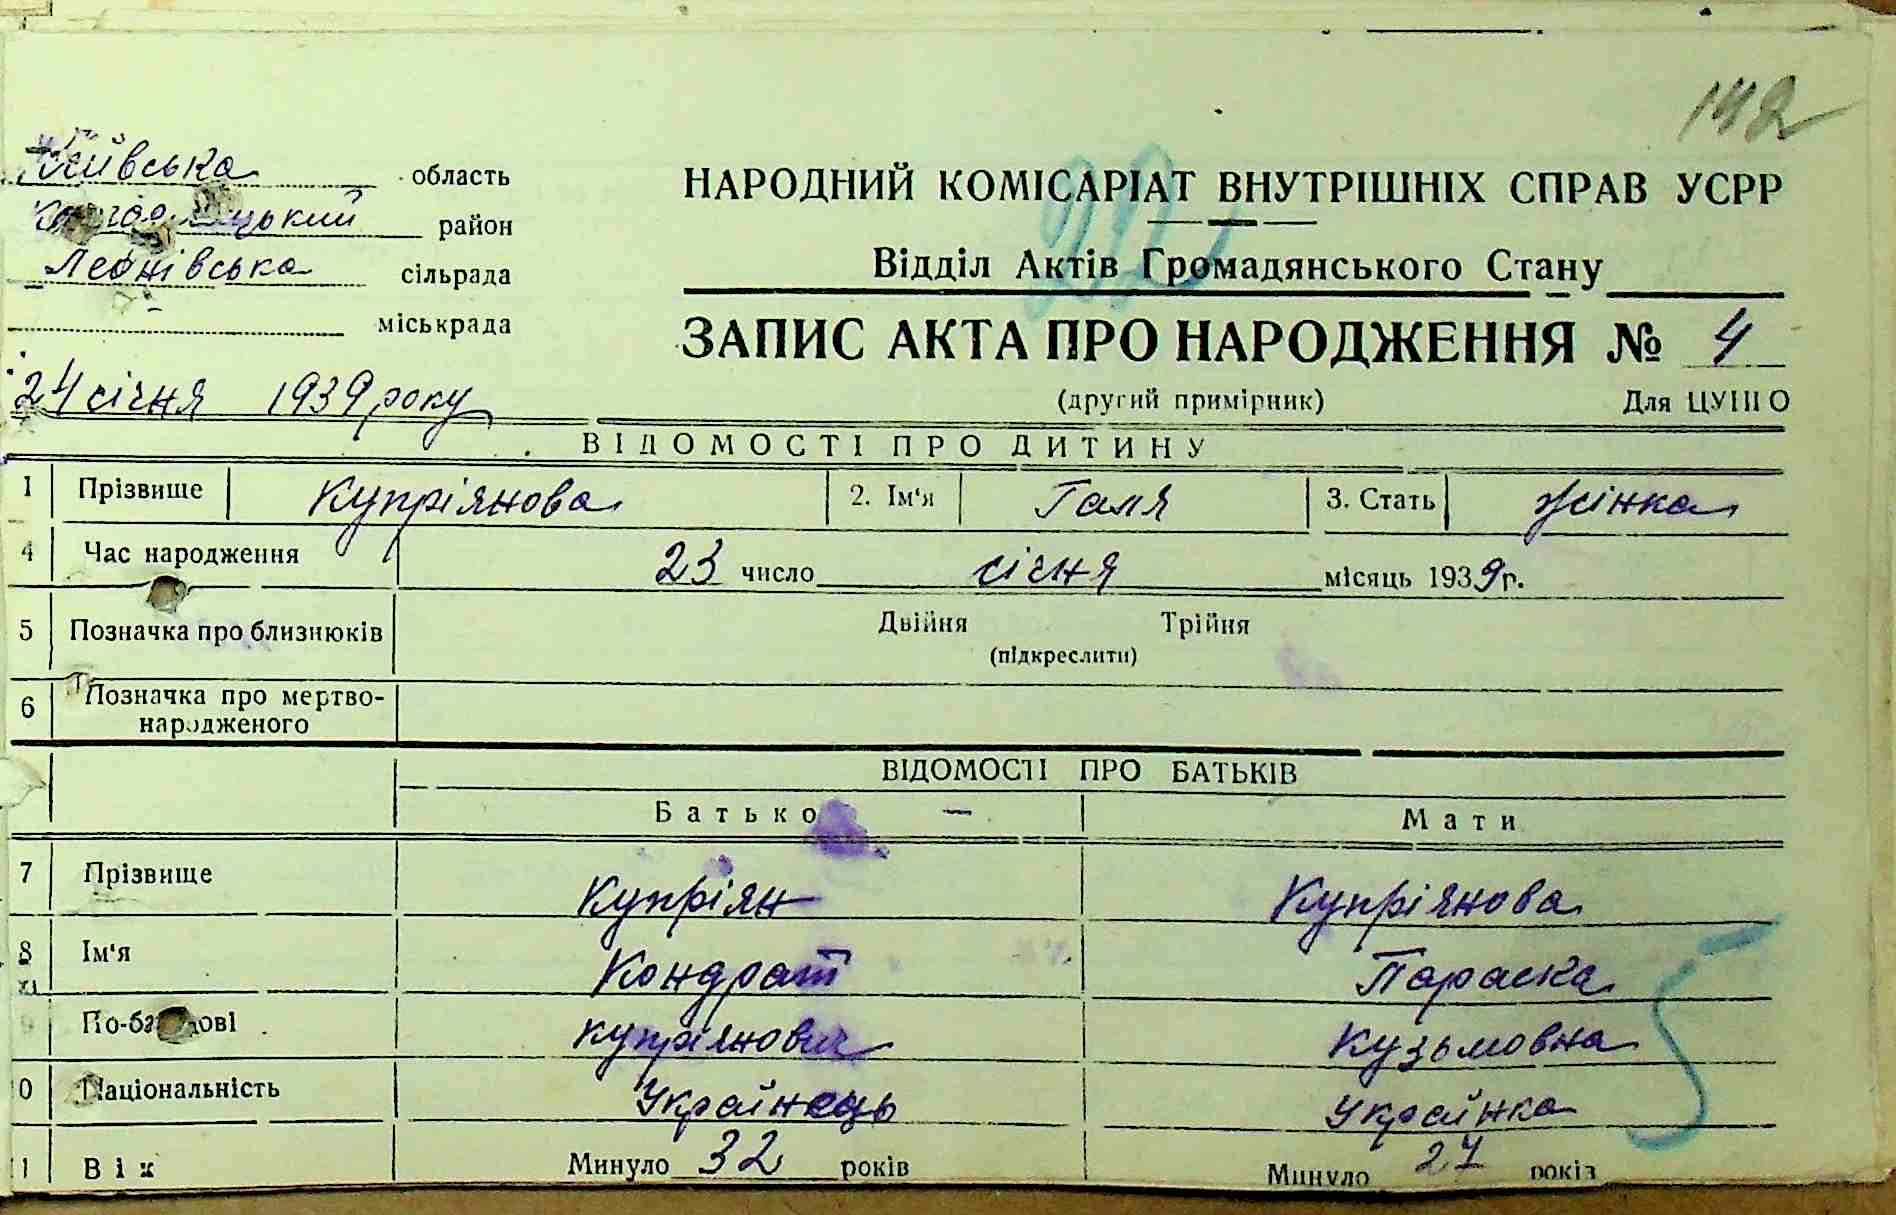 142
Київська область
район
Леонівська сільрада
міськрада
24 січня 1939 року
НАРОДНИЙ КОМІСАРІАТ ВНУТРІШНІХ СПРАВ УСРР
22
Відділ Актів Громадянського Стану
ЗАПИС АКТА ПРО НАРОДЖЕННЯ № 4
(другий примірник) Для ЦУНГО
ВІДОМОСТІ ПРО ДИТИНУ
1 Прізвище Купріянова 2. Ім'я Галя 3. Стать жінка
4 Час народження 23 число січня місяць 1939 р.
5 Позначка про близнюків Двійня Трійня
(підкреслити)
6 Позначка про мертво-
народженого
ВІДОМОСТІ ПРО БАТЬКІВ
Батько — Мати
7 Прізвище Купріян Купріянова
8 Ім'я Кондрат Параска
По-батькові Купріянович Кузьмовна
0 Національність Українець Українка
5
11 Вік Минуло 32 років Минуло 27 років